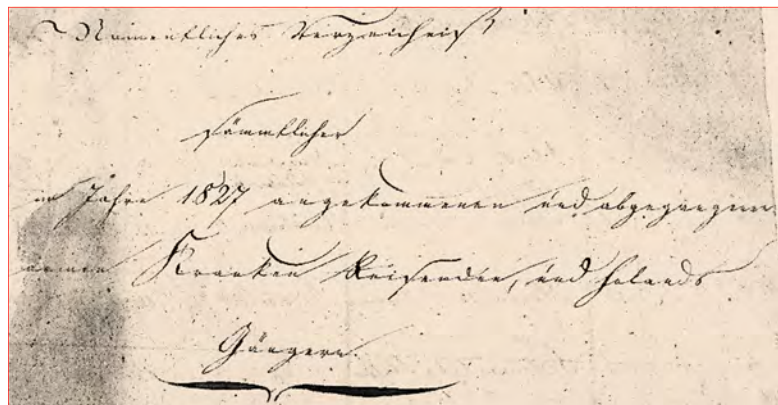 Namentliches Verzeichniß
sämmtlicher
im Jahre 1827 angekommenen und abgegangenen
armen Kranken Reisenden, und Holands
Gängern.